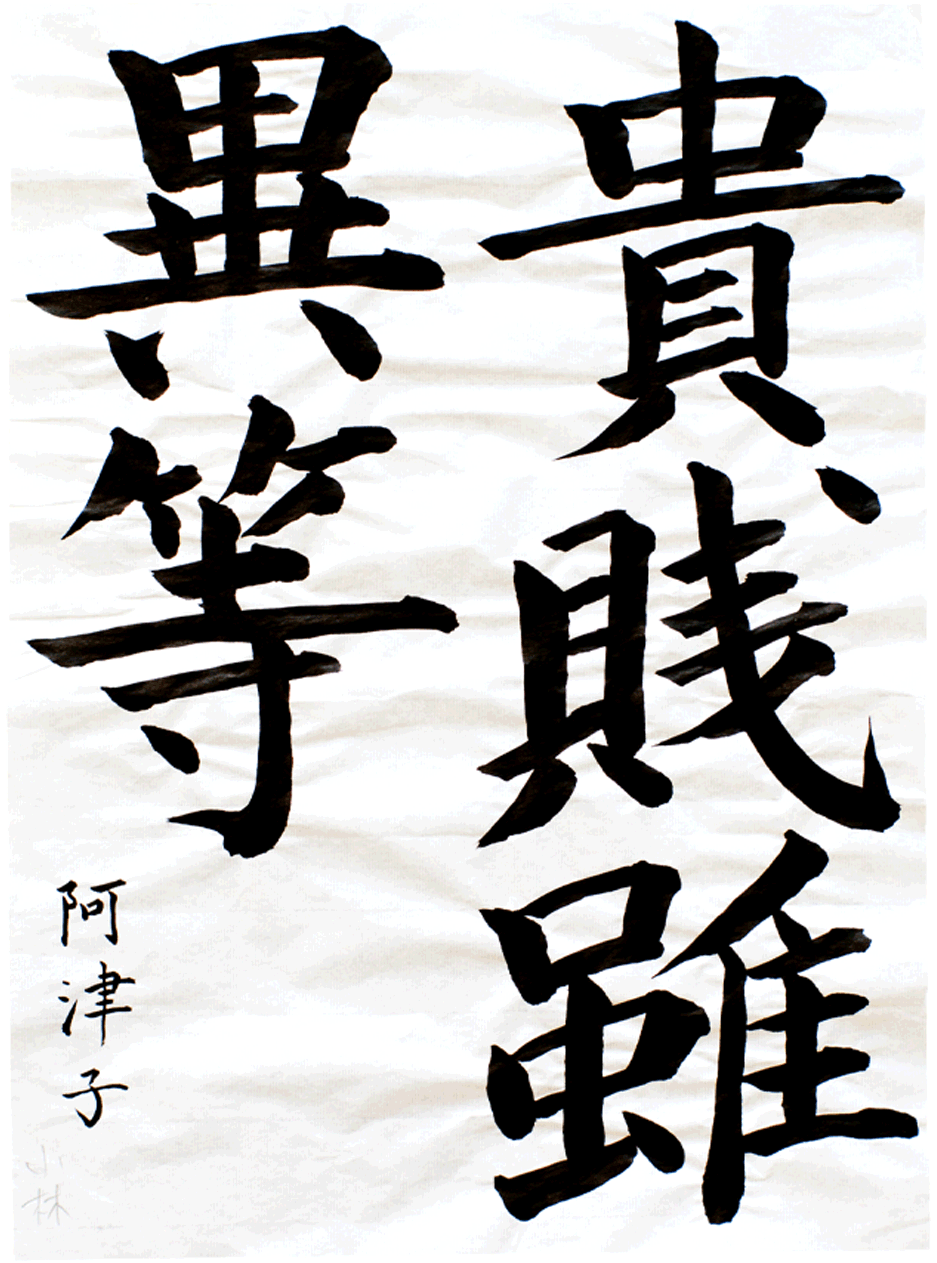 貴賎雖
異等
阿津子
小林